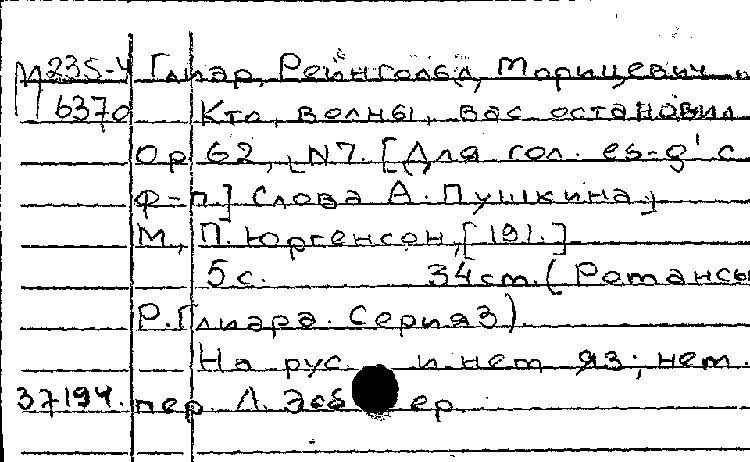 М235-4 Глиэр, Рейнгольд, Морицевич
6370 Кто, волны, вас остановил
Op 62, N7. [Для гол. es-g' с
ф-п.] Слова А. Пушкина.
М., П. Юргенсон, [191.]
5 с. 34 см. (Романсы
Р. Глиэра. Серия 3)
На рус. и нем яз; нем.
37194. пер Л.